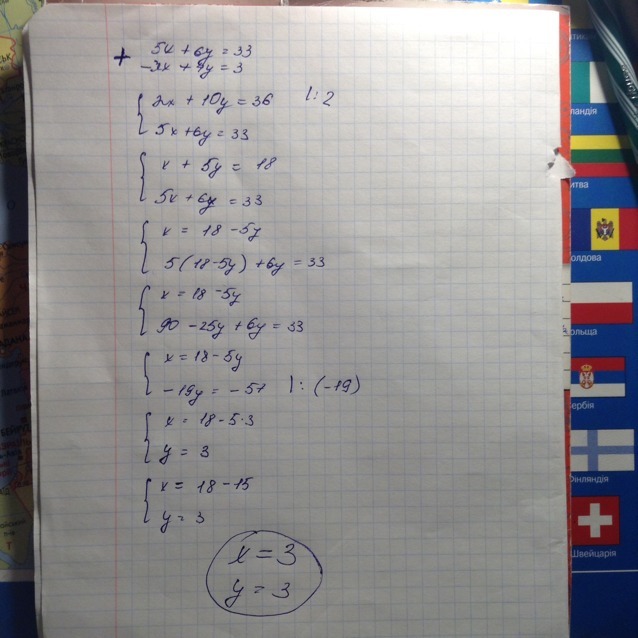 + 5x + 6y = 33
-3x + 4y = 3
2x + 10y = 36 |: 2
5x + 6y = 33
x + 5y = 18
5x + 6y = 33
x = 18 - 5y
5(18 - 5y) + 6y = 33
x = 18 - 5y
90 - 25y + 6y = 33
x = 18 - 5y
-19y = -57 |: (-19)
x = 18 - 5·3
y = 3
x = 18 - 15
y = 3
x = 3
y = 3
ландія
итва
олдова
ольща
ербія
інляндія
Швейцарія